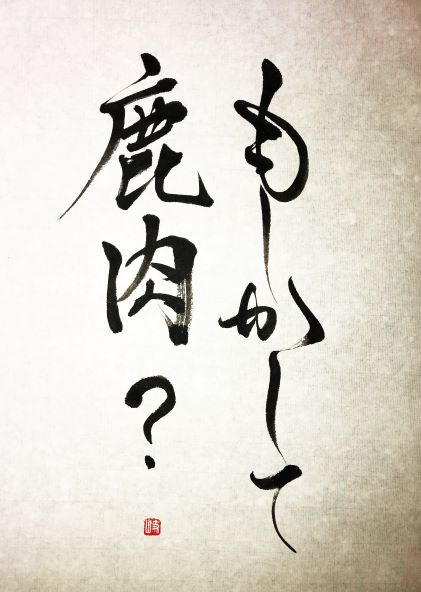 もしかして
鹿肉？